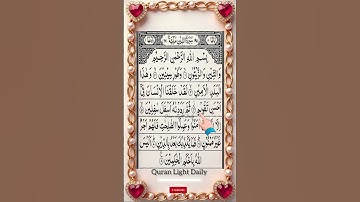 بِسْمِ اللهِ الرَّحْمٰنِ الرَّحِيْمِ
وَالتِّيْنِ وَالزَّيْتُوْنِ ۙ وَطُوْرِ سِيْنِيْنَ ۙ وَهٰذَا
الْبَلَدِ الْاَمِيْنِ ۙ لَقَدْ خَلَقْنَا الْاِنْسَانَ فِيْٓ
اَحْسَنِ تَقْوِيْمٍ ۙ ثُمَّ رَدَدْنٰهُ اَسْفَلَ سٰفِلِيْنَ ۙ
اٰمَنُوْا وَعَمِلُوا الصّٰلِحٰتِ فَلَهُمْ اَجْرٌ
غَيْرُ مَمْنُوْنٍ ۙ فَمَا يُكَذِّبُكَ بَعْدُ بِالدِّيْنِ ۙ اَلَيْسَ
اللهُ بِاَحْكَمِ الْحٰكِمِيْنَ
Quran Light Daily